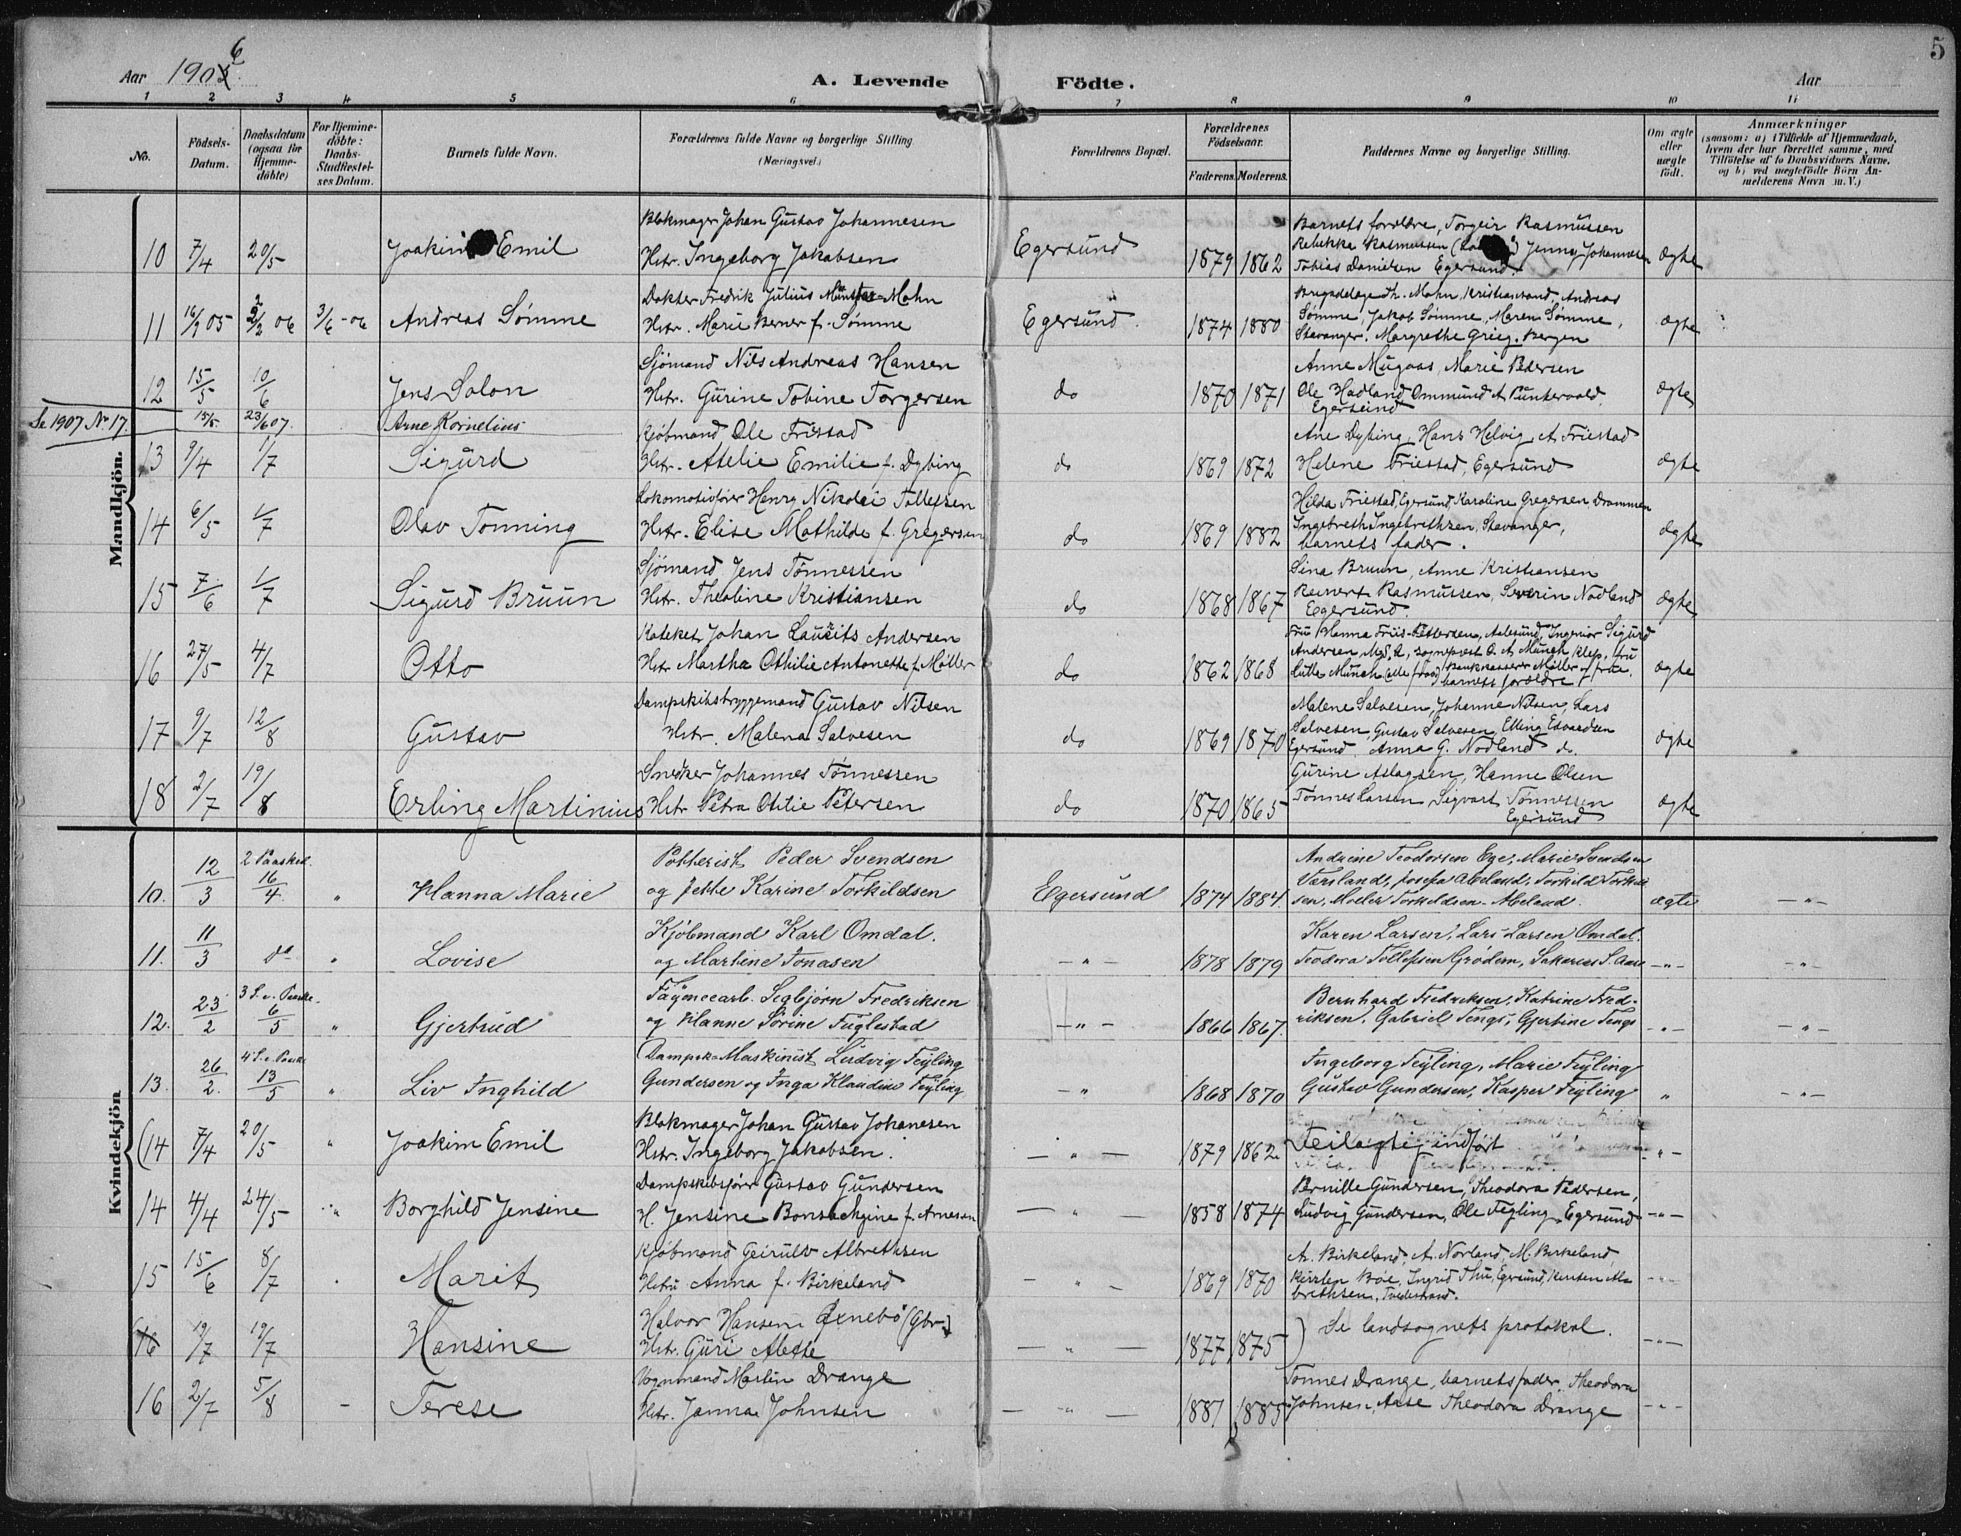 5
Aar 1906
A. Levende Födte.
Aar
1 2 3 4 5 6 7 8 9 10 11
No.
Födsels-Datum.
Daabsdatum (ogsaa for Hjemme-döbte)
For Hjemme-döbte: Daabs-Stadfæstel-ses Datum.
Barnets fulde Navn.
Forældrenes fulde Navne og borgerlige Stilling
(Næringsvei.)
Forældrenes Bopæl.
Forældrenes Födselsaar.
Faderens. Moderens.
Faddernes Navne og borgerlige Stilling.
Om ægte eller uægte födt.
Anmærkninger
(saasom: a) i Tilfælde af Hjemmedaab,
hvem der har forrettet samme, med
Tilföielse af to Daabsvidners Navne,
og b) ved uægtefödte Börn An-
melderens Navn m. V.)
Mandkjön.
Blokmager Johan Gustav Johannesen Barnets forældre, Torgeir Rasmussen
10 7/4 20/5 Joakim Emil Hstr. Ingeborg Jakobsen Egersund 1879 1862 Rebekka Rasmussen Jenny Johannesen ægte
Tobias Danielsen Egersund.
Doktor Fredrik Julius Münster Mohn Th. Mohn, Kristiansand, Andreas
11 16/9 05 2/2 06 3/6 - 06 Andreas Sømme Hstr. Marie Berner f. Sømme Egersund. 1874 1880 Sømme, Jakob Sømme, Maren Sømme, ægte
Stavanger. Margrethe Grieg. Bergen
Sjømand Nils Andreas Hansen Anne Mugaas, Marie Pedersen
12 15/5 10/6 Jens Solon Hstr. Gurine Tobine Torgersen do 1870 1871 Ole Hadland Ommund A. Punkervold. ægte
Egersund
Se 1907 No 17. 15/5. 23/6 07. Arne Kornelius
Kjøbmand Ole Fristad Ane Dybing, Hans Helvig, A. Friestad
13 9/4 1/7 Sigurd Hstr. Atelie Emilie f. Dybing do 1869 1872 Helene Friestad, Egersund ægte
Lokomotivfører Henry Nikolai Tollefsen Hilda Friestad, Egersund, Karoline Gregersen Drammen
14 6/5 1/7 Olav Tonning Hstr. Elise Mathilde f. Gregersen do 1869 1882 Ingebreth Ingebrethsen, Stavanger, ægte
barnets fader.
Sjømand Jens Tønnessen Sina Bruun, Anne Kristiansen
15 7/6 1/7 Sigurd Bruun Hstr. Theoline Kristiansen do 1868 1867 Reinert Rasmussen, Severin Nodland ægte
Egersund.
Kateket Johan Laurits Andersen Fru Hanna Friis-Pettersen, Aalesund, Ingeniør Sigurd
16 27/5 4/7 Otto Hstr Martha Othilie Antonette f. Møller do 1862 1868 Andersen, sogneprest O. A. Münch Klep, fru ægte
Münch Bankkasserer Møller
barnets forældre
Dampskibsbryggemand Gustav Nilsen Malene Salvesen, Johanne Nilsen, Lars
17 9/7 12/8 Gustav Hstr. Malena Salvesen do 1869 1870 Salvesen, Gustav Salvesen, Elling Edvardsen ægte
Egersund. Anna G. Nodland do.
Snedker Johannes Tønnessen Gurine Aslagsen, Hanne Olsen
18 2/7 19/8 Erling Martinius Hstr Petra Otilie Petersen do 1870 1865 Tønnes Larsen, Sigvart Tønnessen ægte
Egersund
Kvindekjön
2 Paasked. Potterist Peder Svendsen Andrine Teodorsen Ege, Marie Svendsen
10. 12/3 16/4 " Hanna Marie og Jette Karine Torkildsen Egersund 1874 1884. Varsland, Josefa Abeland, Torkild Torkild- ægte - " -
sen, Moller Torkildsen Abeland.
Kjøbmand Karl Omdal. Karen Larsen, Lars Larsen Omdal.
11. 11/3 do " Lovise og Martine Jonasen - " - 1878 1879 Teodora Tollefsen Grødem, Sakarias S. Aase - " - - " -
3 S. e. Paaske. Sigbjørn Fredriksen Bernhard Fredriksen, Katrine Fred-
12. 23/2 6/5 " Gjertrud og Hanne Sørine Fuglestad - " - 1866 1867. riksen. Gabriel Tengs, Gjertine Tengs - " - - " -
4 S. e. Paaske Dampsk. Maskinist Ludvig Feyling Ingeborg Feyling, Marie Feyling
13. 26/2. 13/5 " Liv Inghild Gundersen og Inga Klaudine Feyling " 1868 1870 Gustav Gundersen, Kasper Feyling " - " -
Blokmager Johan Gustav Johanesen
(14 7/4 20/5 " Joakim Emil Hstr. Ingeborg Jakobsen. - " - 1879 1862 Feilagtig indført - " -
Dampskibsfører Gustav Gundersen Pernille Gundersen, Theodora Pedersen,
14 4/4 24/5 " Borghild Jensine H. Jensine f. Arnesen - " - 1858 1874 Ludvig Gundersen, Ole Feyling, Egersund - " -
Kjøbmand Geirulv Albrethsen A. Birkeland, A. Norland, M. Birkeland,
15 15/6 8/7 Marit Hstru Anna f. Birkeland - " - 1869 1870 Kirsten Boe, Ingrid Thu, Egersund, Kirsten Al- - " -
brethsen, Tvedestrand.
Halvor Hansen Øxnebø (Gbr.)
(16 19/7 19/7 Hansine Hstr. Guri Alette - " - 1877 1875 ) Se landsognets protokol. - " -
Vognmand Martin Drange Tønnes Drange, barnets fader, Theodora
16 2/7 5/8 - Terese Hstr. Janna Johnsen - " - 1881 1885 Johnsen, Aase Theodora Drange - " -